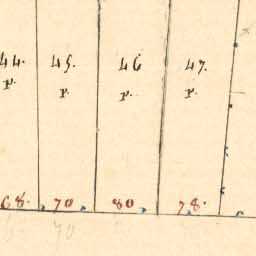 44. 45. 46 47.
P. P. P. P.
68. 70 80 78.
70